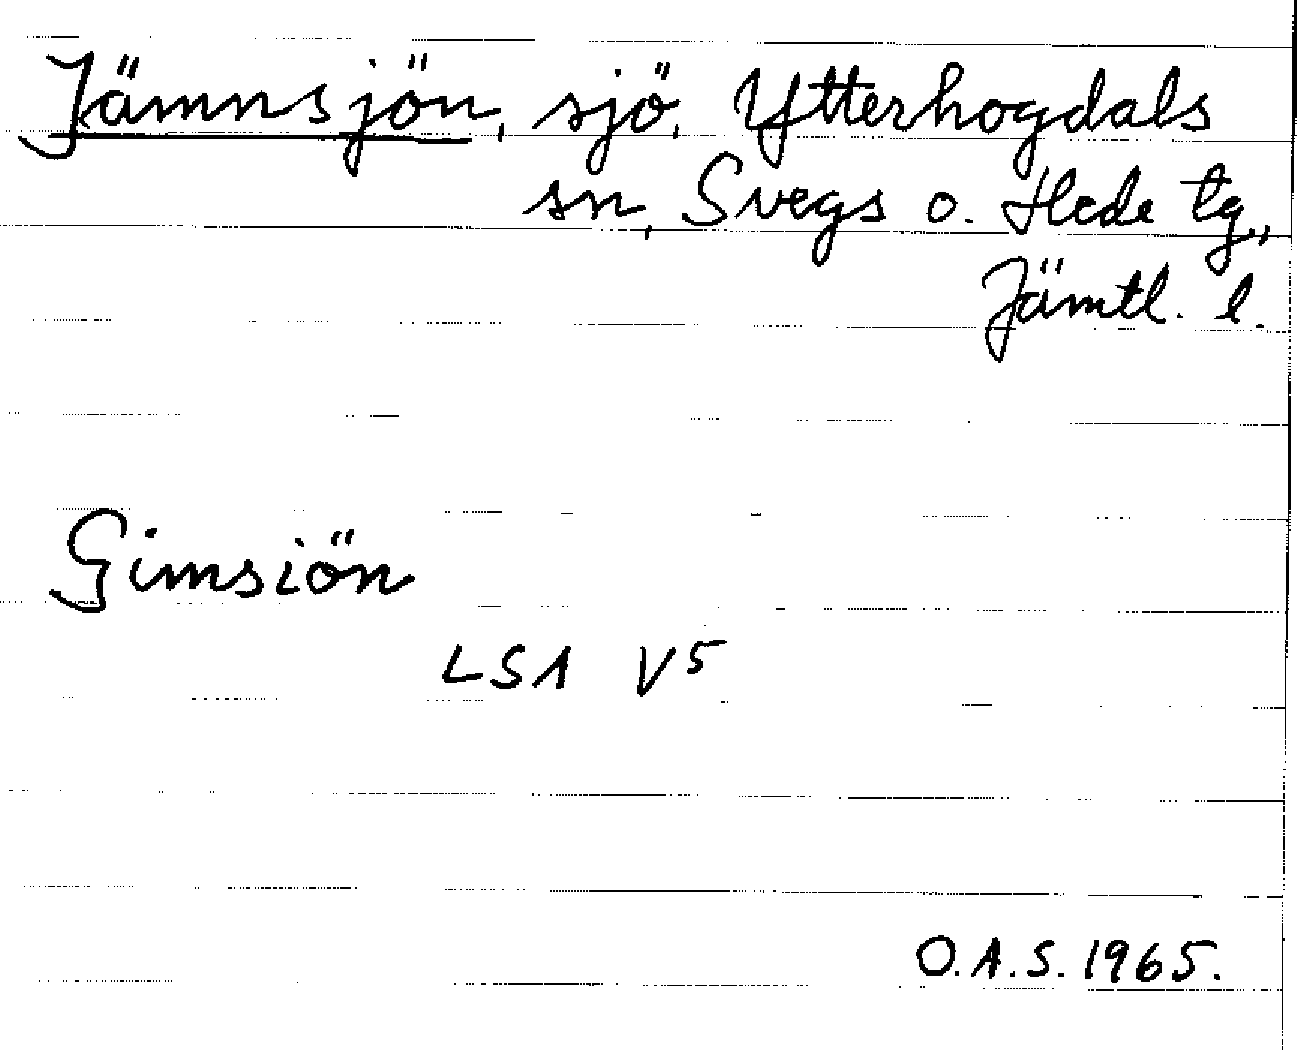 Jämnsjön, sjö, Ytterhogdals
sn, Svegs o. Hede tg,,
Jämtl. l.
Gimsiön
LSA V5
O.A.S. 1965.